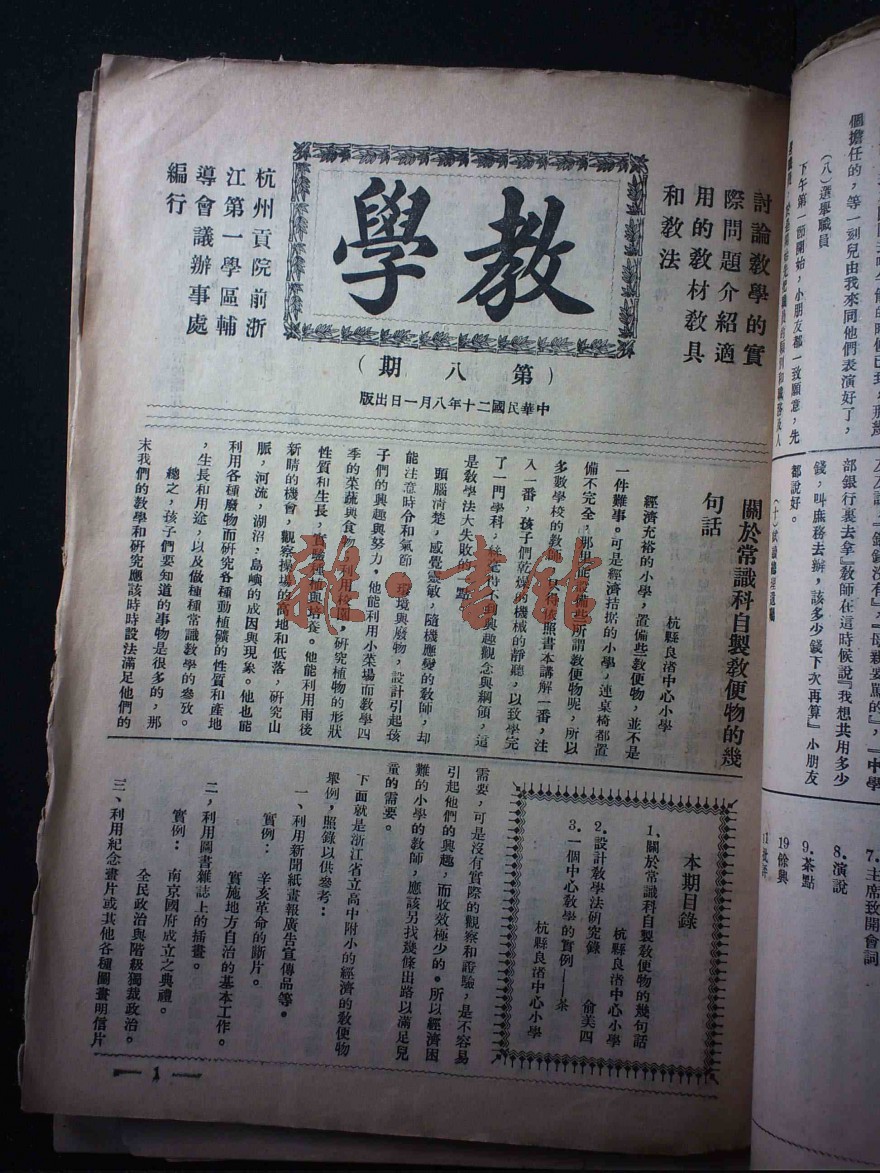 討論教學的實
際問題介紹適
用的教材教具
和教法
教學
(第八期)
中華民國二十年八月一日出版
杭州貢院前浙
江第一學區輔
導會議辦事處
編行
關於常識科自製教便物的幾
句話
杭縣良渚中心小學
經濟充裕的小學，置備些教便物，並不是
一件難事。可是經濟拮据的小學，連桌椅都置
備不完全，那里能設備些所謂教便物呢，所以
多數學校的教師，只得依照書本講解一番，注
入一番，孩子們乾燥的機械的靜聽，以致學完
了一門學科，絲毫得不到興趣觀念與綱領，這
是教學法大失敗的一點。
頭腦清楚，感覺靈敏，隨機應變的教師，却
能注意時令和氣節，環境與廢物，設計引起孩
子們的興趣與努力。他能利用小菜場而教學四
季的菜蔬與食物，利用校園，研究植物的形狀
性質和生長，實驗種植與培養。他能利用雨後
新晴的機會，觀察操場的高地和低落，研究山
脈，河流，湖沼，島嶼的成因與現象。他也能
利用各種廢物而研究各種動植礦的性質和產地
，生長和用途，以及做種種常識教學的參攷。
總之，孩子們要知道的事物是很多的，那
末我們的教學和研究應該時時設法滿足他們的
本期目錄
1、關於常識科自製教便物的幾句話
杭縣良渚中心小學
2、設計教學法研究錄　俞美四
3、一個中心教學的實例——茶
杭縣良渚中心小學
需要，可是沒有實際的觀察和證驗，是不容易
引起他們的興趣，而收效極少的。所以經濟困
難的小學的教師，應該另找幾條出路以滿足兒
童的需要。
下面就是浙江省立高中附小的經濟的教便物
舉例，照錄以供參考：
一、利用新聞紙畫報廣告宣傳品等。
實例：辛亥革命的斷片。
實施地方自治的基本工作。
二，利用圖書雜誌上的插畫。
實例：南京國府成立之典禮。
全民政治與階級獨裁政治。
三、利用紀念畫片或其他各種圖畫明信片
1
個擔任的，等一刻兒由我來同他們表演好了，
(八)選舉職員
下午第一節開始，小朋友都一致願意，先
部銀行裏去拿』教師在這時候說『我想共用多少
錢，叫庶務去辦，該多少錢下次再算』小朋友
都說好。
7.主席致開會詞
8.演說
9.茶點
10餘興
雜·書館